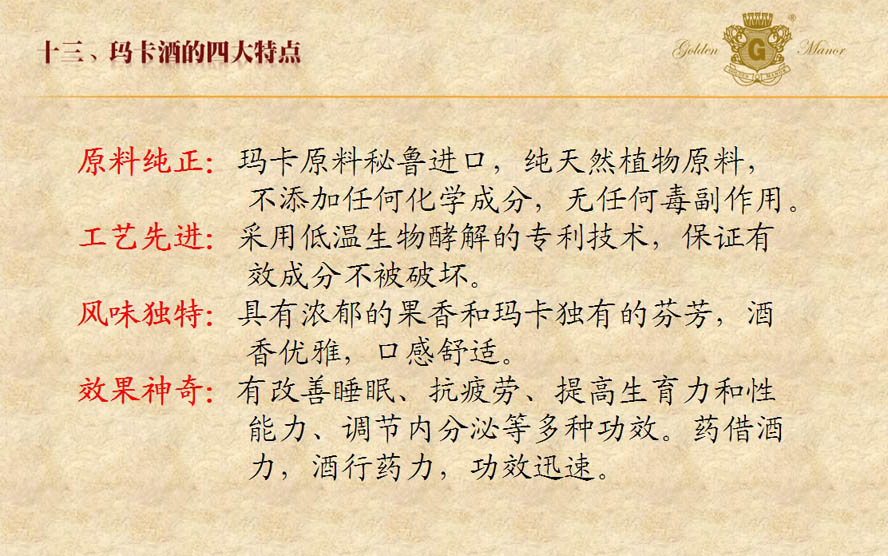 十三、玛卡酒的四大特点
Golden Manor
G
原料纯正：玛卡原料秘鲁进口，纯天然植物原料，
不添加任何化学成分，无任何毒副作用。
工艺先进：采用低温生物酵解的专利技术，保证有
效成分不被破坏。
风味独特：具有浓郁的果香和玛卡独有的芬芳，酒
香优雅，口感舒适。
效果神奇：有改善睡眠、抗疲劳、提高生育力和性
能力、调节内分泌等多种功效。药借酒
力，酒行药力，功效迅速。